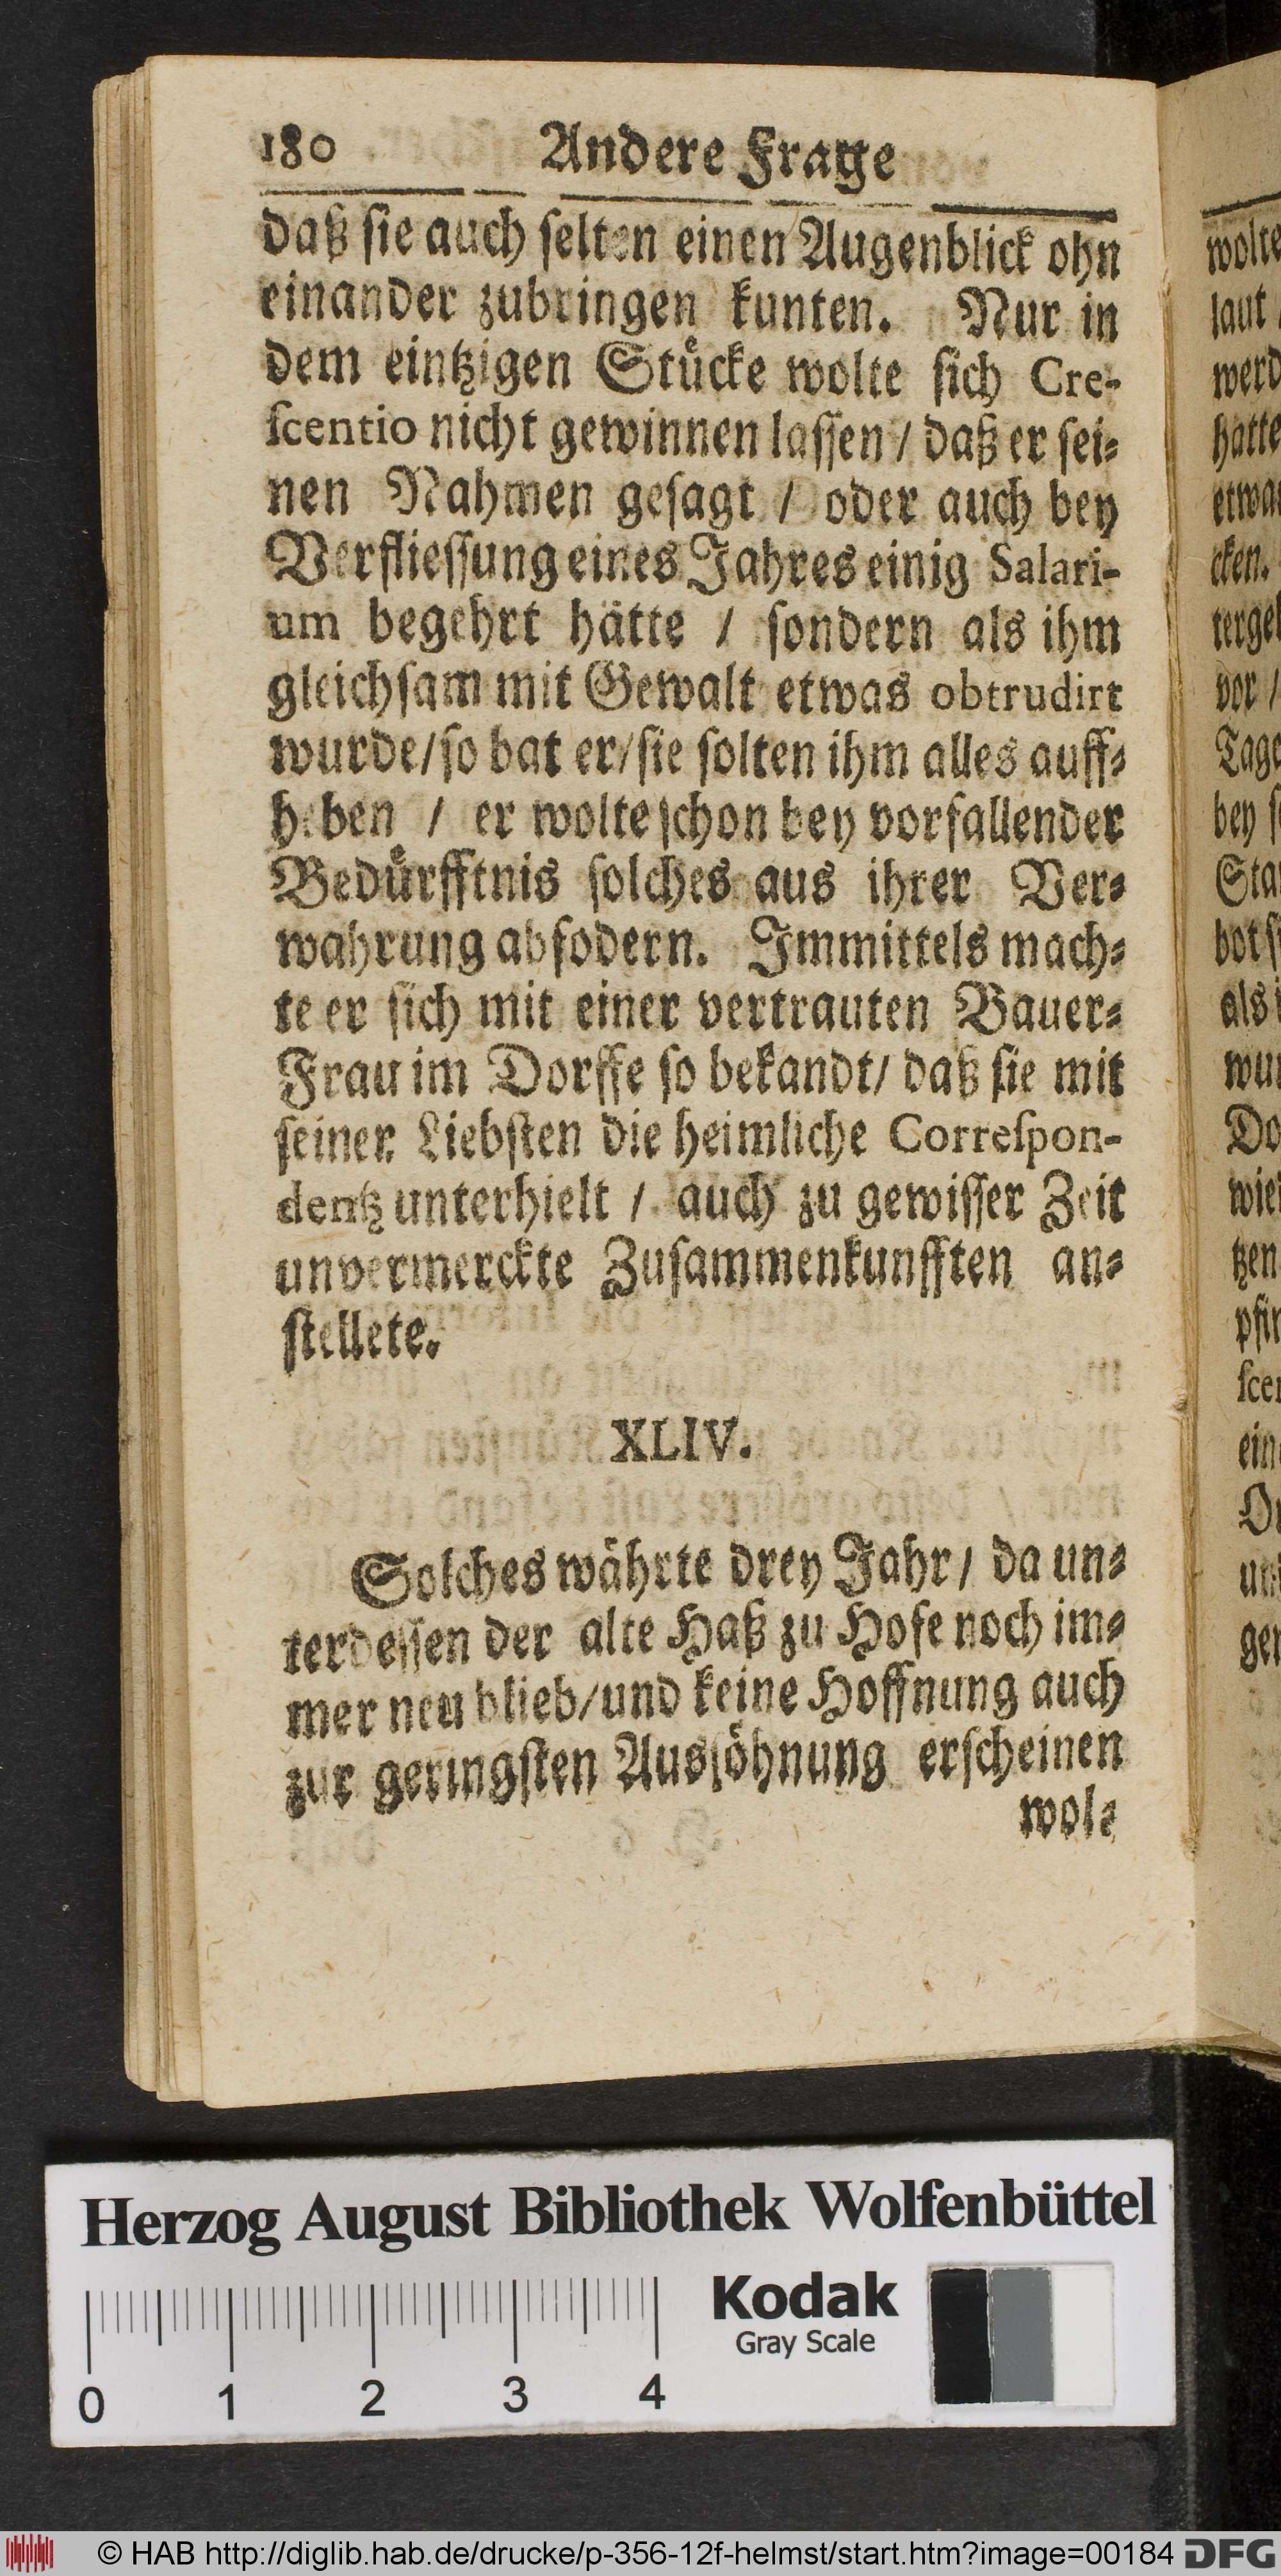 180 Andere Frage
daß ſie auch ſelten einen Augenblick ohn
einander zubringen kunten. Nur in
dem eintzigen Stuͤcke wolte ſich Cre-
ſcentio nicht gewinnen laſſen / daß er ſei⸗
nen Nahmen geſagt / oder auch bey
Verflieſſung eines Jahres einig Salari-
um begehrt haͤtte / ſondern als ihm
gleichſam mit Gewalt etwas obtrudirt
wurde / ſo bat er / ſie ſolten ihm alles auff⸗
heben / er wolte ſchon bey vorfallender
Beduͤrfftnis ſolches aus ihrer Ver⸗
wahrung abfodern. Immittels mach⸗
te er ſich mit einer vertrauten Bauer⸗
Frau im Dorffe ſo bekandt / daß ſie mit
ſeiner Liebſten die heimliche Correſpon-
dentz unterhielt / auch zu gewiſſer Zeit
unvermerckte Zuſammenkunfften an⸗
ſtellete.
XLIV.
Solches waͤhrte drey Jahr / da un⸗
terdeſſen der alte Haß zu Hofe noch im⸗
mer neu blieb / und keine Hoffnung auch
zur geringſten Ausſoͤhnung erſcheinen
wol⸗
wolte
laut
werd
hatte
etwa
cken.
tergel
vor /
Tage
bey ſ
Sta
bot ſ
als
wu
Do
wie
tzen
pfin
ſce
ein
un
ger
Herzog August Bibliothek Wolfenbüttel
Kodak
Gray Scale
0 1 2 3 4
© HAB http://diglib.hab.de/drucke/p-356-12f-helmst/start.htm?image=00184 DFG